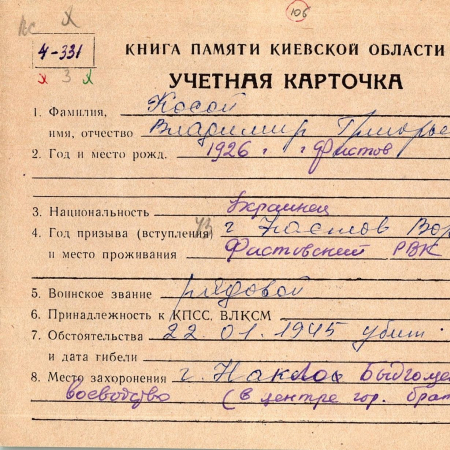 106
4-331
КНИГА ПАМЯТИ КИЕВСКОЙ ОБЛАСТИ
х 3 х
УЧЕТНАЯ КАРТОЧКА
1. Фамилия, Косой
имя, отчество Владимир Григорье
2. Год и место рожд. 1926 г. г. Фастов
3. Национальность Украинец
4. Год призыва (вступления) г
и место проживания Фастовский РВК
5. Воинское звание рядовой
6. Принадлежность к КПСС, ВЛКСМ
7. Обстоятельства 22 01.1945 убит
и дата гибели
8. Место захоронения г. Накло Быдгоще
воеводство (в центре гор. брат